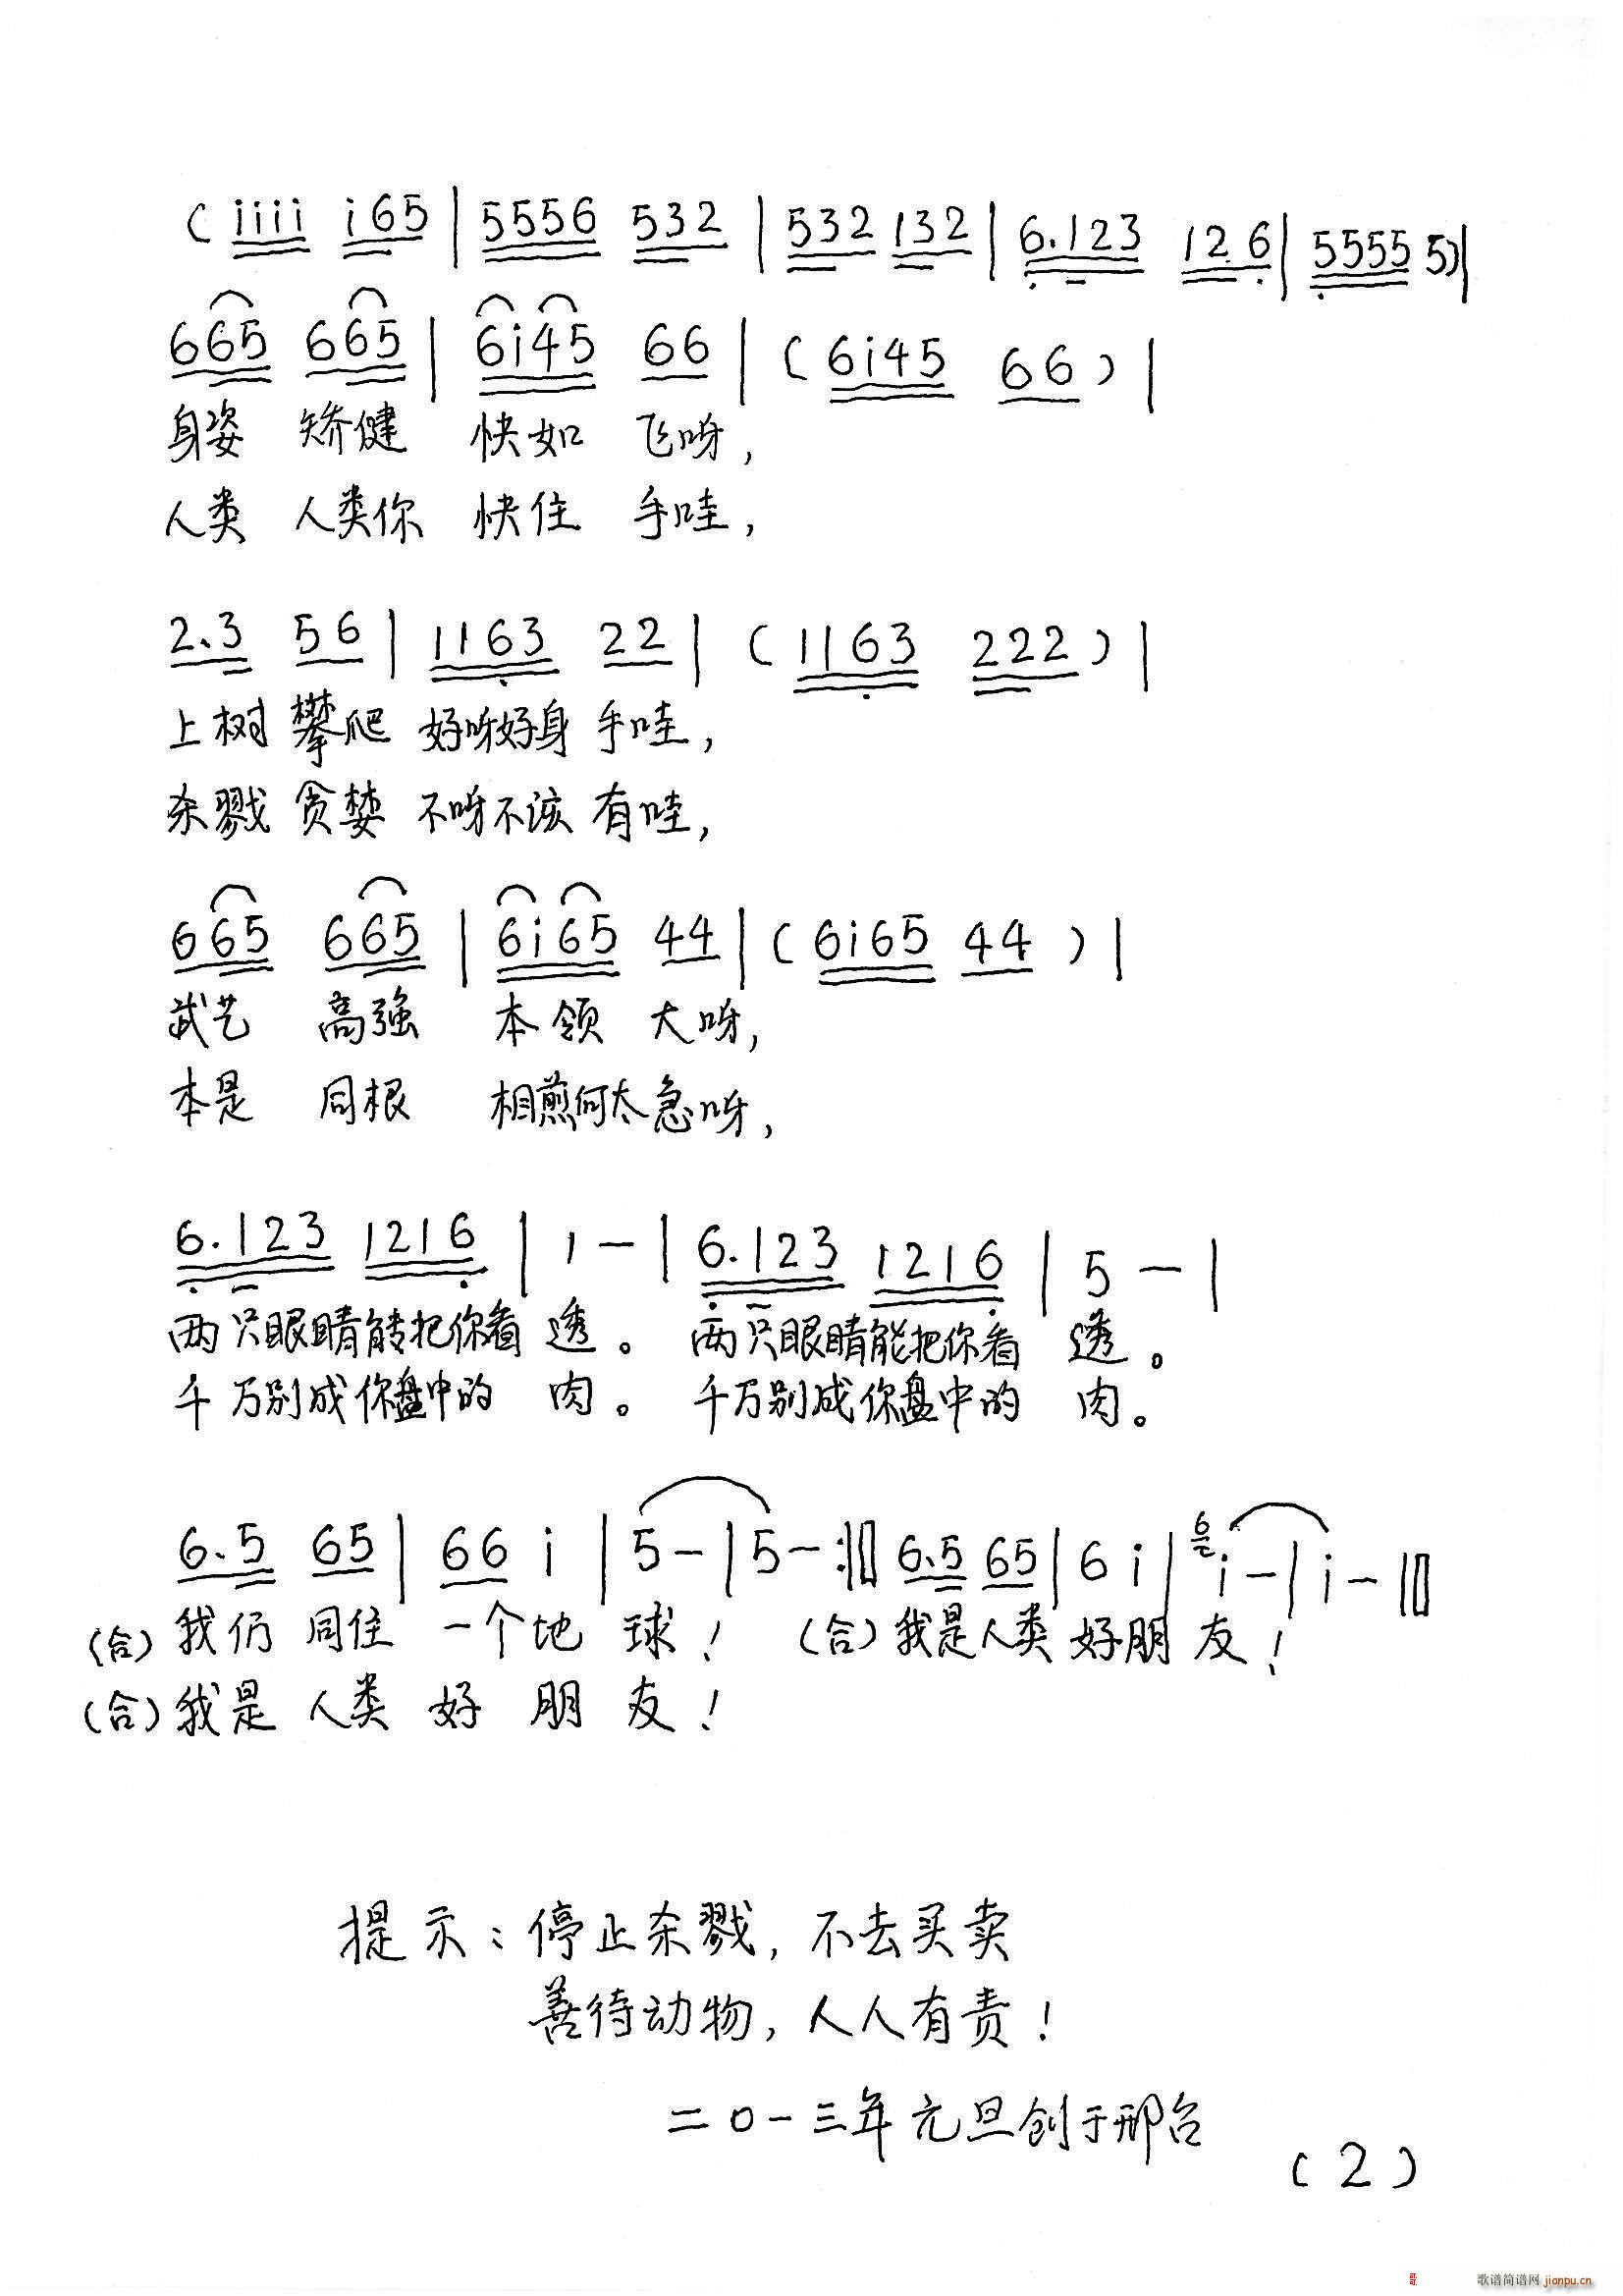 ( i i i i i 6 5 | 5 5 5 6 5 3 2 | 5 3 2 1 3 2 | 6. 1 2 3 1 2 6 | 5 5 5 5 5 ) |
6 6 5 6 6 5 | 6 i 4 5 6 6 | ( 6 i 4 5 6 6 ) |
身姿 矫健 快如 飞呀,
人类 人类你 快住 手哇,
2. 3 5 6 | 1 1 6 3 2 2 | ( 1 1 6 3 2 2 2 ) |
上树 攀爬 好呀好身 手哇,
杀戮 贪婪 不呀不该 有哇,
6 6 5 6 6 5 | 6 i 6 5 4 4 | ( 6 i 6 5 4 4 ) |
武艺 高强 本领 大呀,
本是 同根 相煎何太急呀,
6. 1 2 3 1 2 1 6 | 1 — | 6. 1 2 3 1 2 1 6 | 5 — |
两只眼睛能把你看 透。 两只眼睛能把你看 透。
千万别成你盘中的 肉。 千万别成你盘中的 肉。
6. 5 6 5 | 6 6 i | 5 — | 5 — :|| 6. 5 6 5 | 6 i | 6 i — | i — ||
(合) 我们 同住 一个地 球! (合) 我是人类 好朋 友!
(合) 我是 人类 好 朋 友!
提示: 停止杀戮, 不去买卖
善待动物, 人人有责!
二〇一三年元旦创于邢台
(2)
歌谱简谱网 jianpu.cn